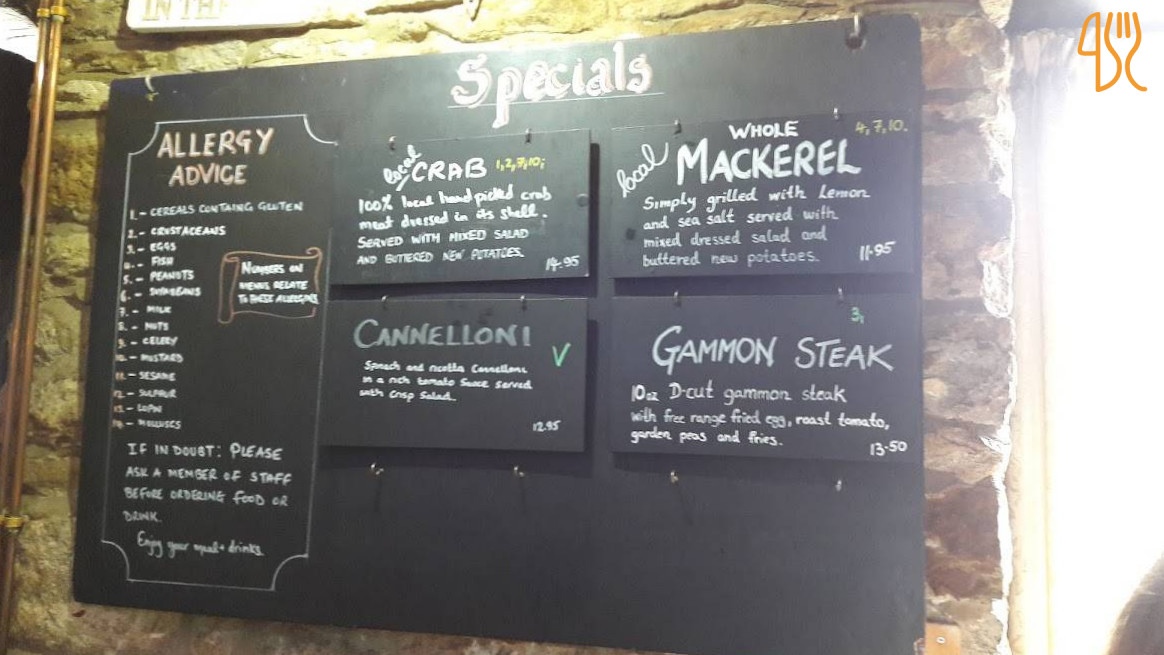 IN THE
Specials
ALLERGY
ADVICE
1.- CEREALS CONTAING GLUTEN
2.- CRUSTACEANS
3.- EGGS
4.- FISH
5.- PEANUTS
6.- SOYABEANS
7.- MILK
8.- NUTS
9.- CELERY
10.- MUSTARD
11.- SESAME
12.- SULPHUR
13.- LUPIN
14.- MOLLUSCS
NUMBERS ON
MENUS RELATE
TO THESE ALLERGENS
IF IN DOUBT: PLEASE
ASK A MEMBER OF STAFF
BEFORE ORDERING FOOD OR
DRINK.
Enjoy your meal + drinks.
local CRAB 1,2,7,10;
100% local hand picked crab
meat dressed in its shell.
SERVED WITH MIXED SALAD
AND BUTTERED NEW POTATOES.
14.95
local WHOLE 4,7,10.
MACKEREL
Simply grilled with Lemon
and sea salt served with
mixed dressed salad and
buttered new potatoes. 11.95
CANNELLONI
V
Spinach and ricotta Cannelloni
in a rich tomato Sauce served
with Crisp Salad.
12.95
3,
GAMMON STEAK
10oz D-cut gammon steak
with free range fried egg, roast tomato,
garden peas and fries.
13.50